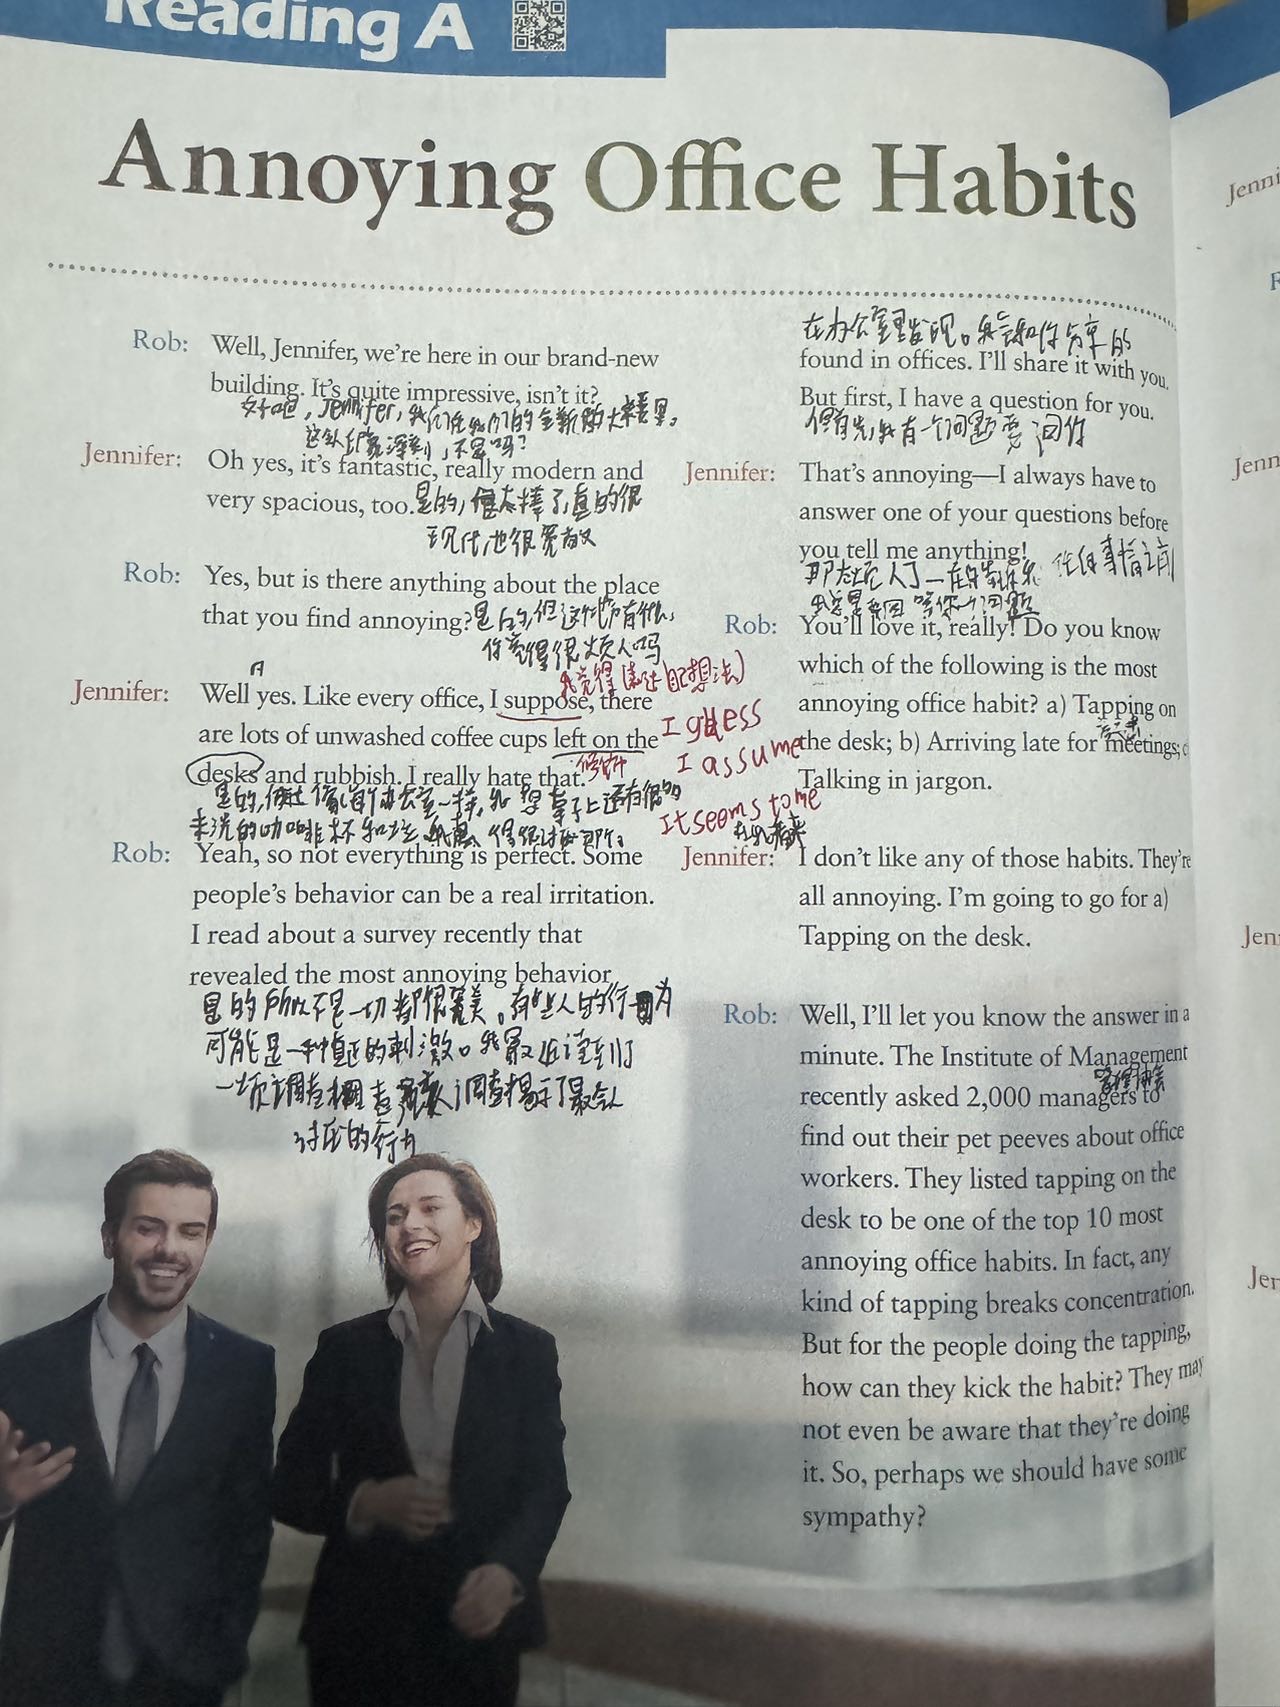 Reading A
Annoying Office Habits
Rob: Well, Jennifer, we're here in our brand-new
building. It's quite impressive, isn't it?
好吧，Jennifer，我们在我们的全新的大楼里。
这令人印象深刻，不是吗？
Jennifer: Oh yes, it's fantastic, really modern and
very spacious, too. 是的，太棒了，真的很
现代，也很宽敞
Rob: Yes, but is there anything about the place
that you find annoying? 是的，但这个地方有什么
你觉得很烦人吗
我觉得(表达自己想法)
Jennifer: Well yes. Like every office, I suppose, there
I guess
are lots of unwashed coffee cups left on the
I assume
desks and rubbish. I really hate that.
是的，就像每个办公室一样，我想桌子上还有很多
It seems to me
在我看来
未洗的咖啡杯和垃圾
Rob: Yeah, so not everything is perfect. Some
people's behavior can be a real irritation.
I read about a survey recently that
revealed the most annoying behavior
是的所以不是一切都很完美。有些人的行为
可能是一种真正的刺激。我最近读到了
一项调查 调查揭示了最令人
讨厌的行为
在办公室里发现。我会和你分享的
found in offices. I'll share it with you.
But first, I have a question for you.
但首先，我有一个问题要问你
Jennifer: That's annoying—I always have to
answer one of your questions before
you tell me anything!
那太烦人了—在告诉我 任何事情之前
我总是要回答你一个问题
Rob: You'll love it, really! Do you know
which of the following is the most
annoying office habit? a) Tapping on
敲击
the desk; b) Arriving late for meetings; c
Talking in jargon.
Jennifer: I don't like any of those habits. They're
all annoying. I'm going to go for a)
Tapping on the desk.
Rob: Well, I'll let you know the answer in a
minute. The Institute of Management
recently asked 2,000 managers to
find out their pet peeves about office
workers. They listed tapping on the
desk to be one of the top 10 most
annoying office habits. In fact, any
kind of tapping breaks concentration.
But for the people doing the tapping,
how can they kick the habit? They may
not even be aware that they're doing
it. So, perhaps we should have some
sympathy?
Jenni
R
Jenn
Jen
Jer